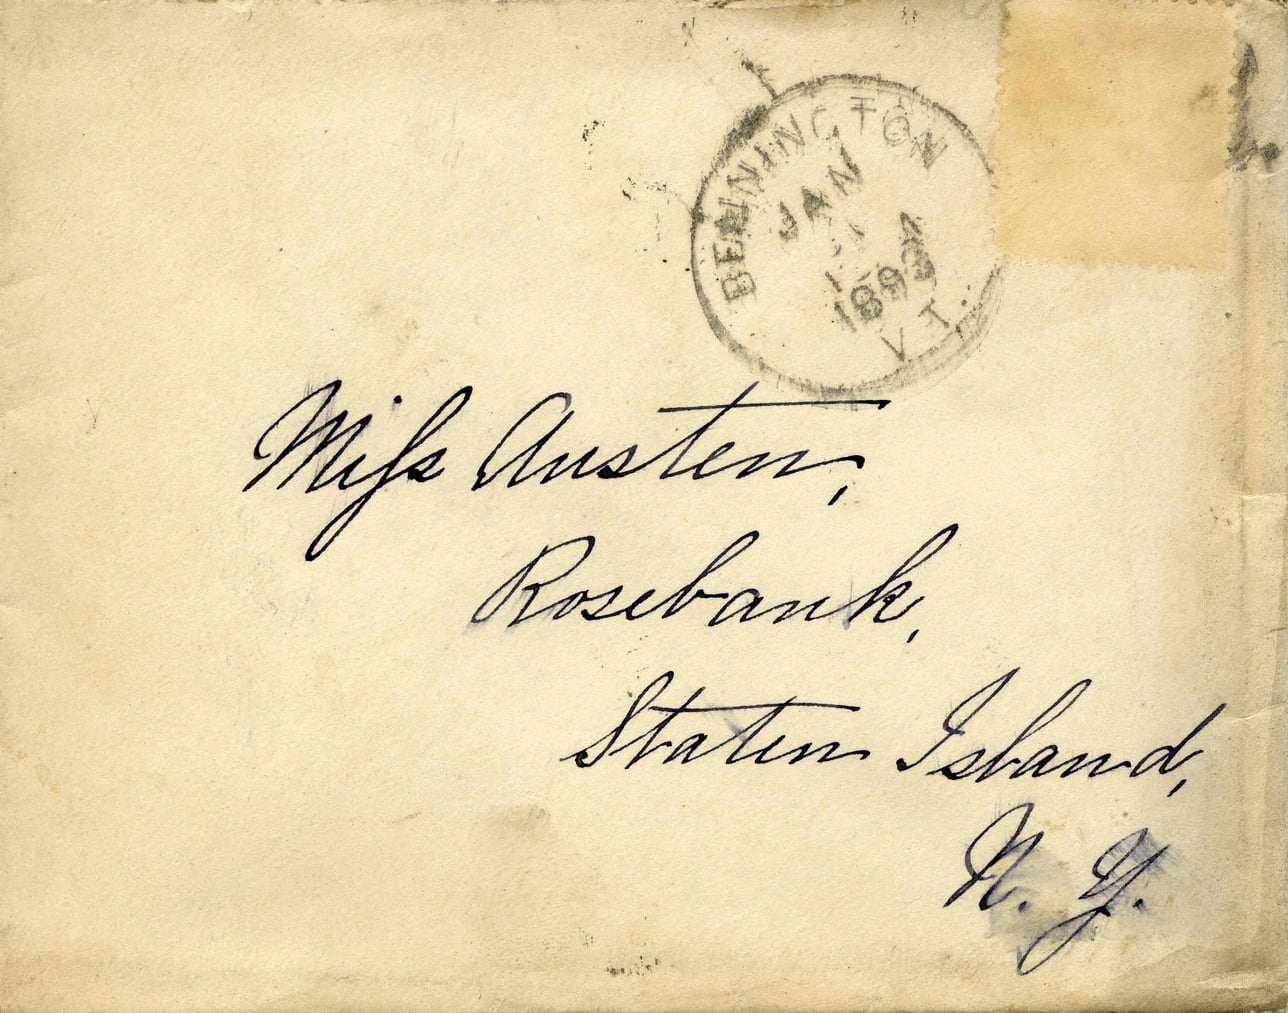 BENNINGTON
JAN
VT.
Miss Austen,
Rosebank,
Staten Island,
N. Y.